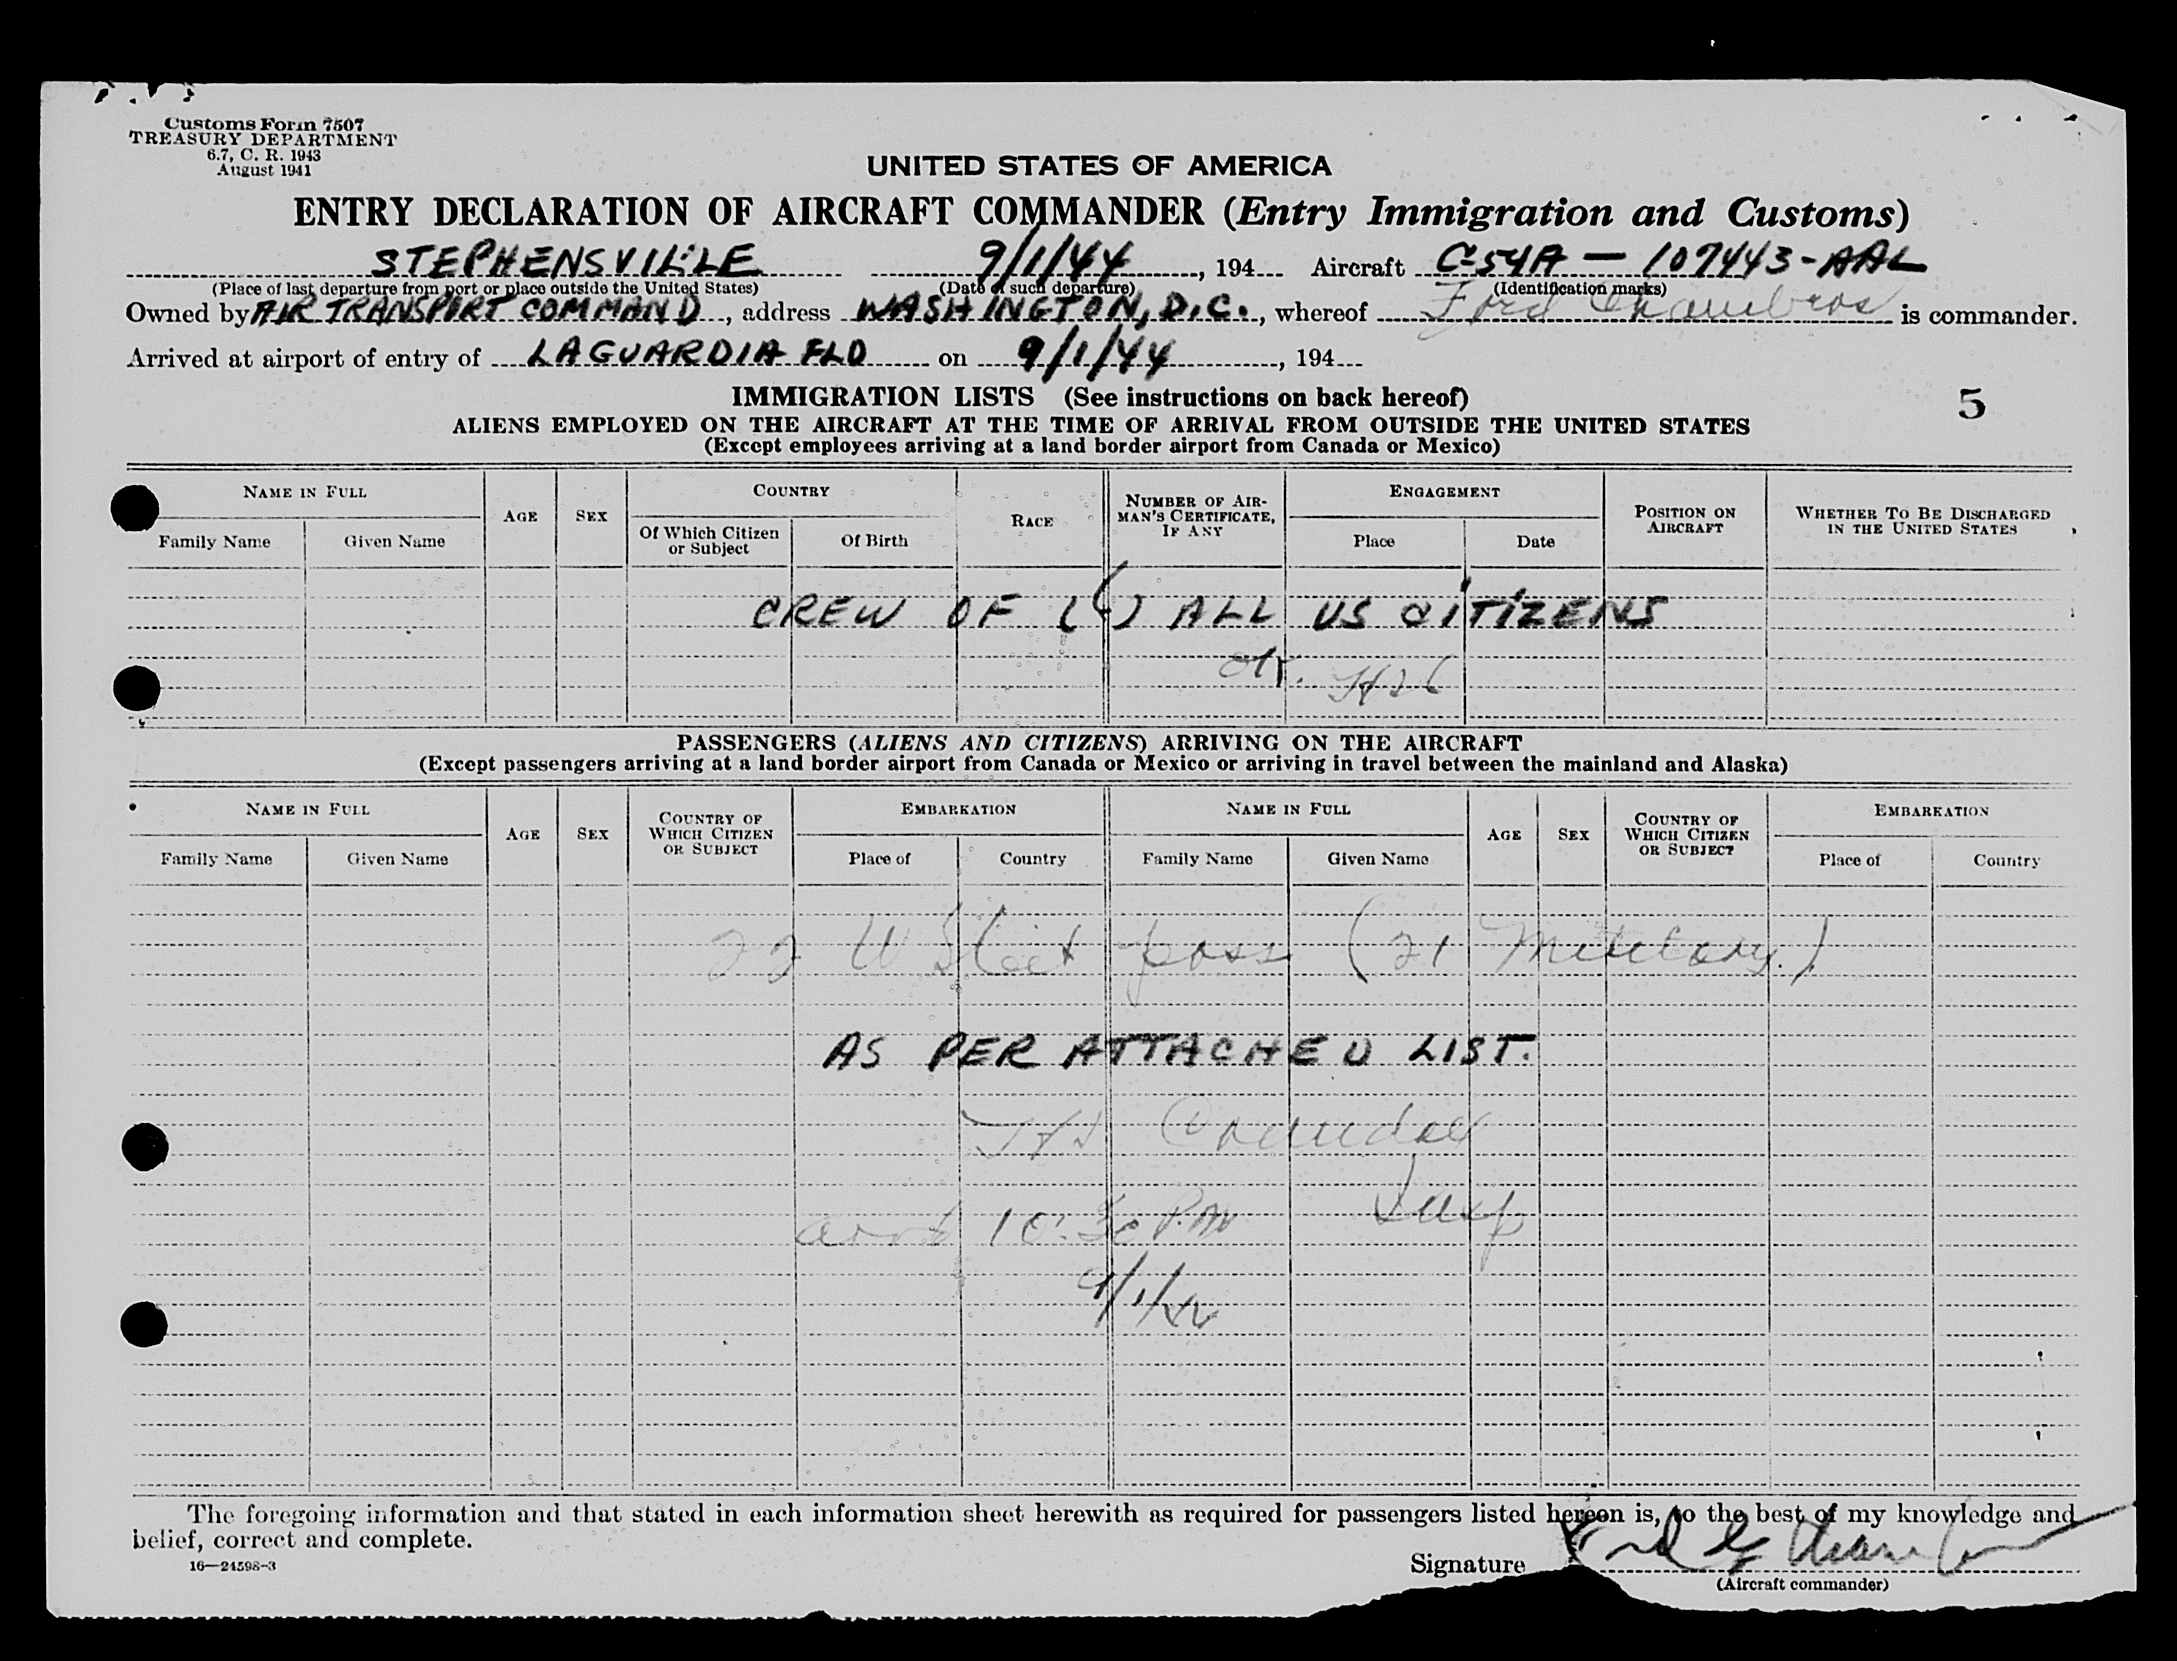 Customs Form 7507
TREASURY DEPARTMENT
6.7, C. R. 1943
August 1941
UNITED STATES OF AMERICA
ENTRY DECLARATION OF AIRCRAFT COMMANDER (Entry Immigration and Customs)
STEPHENSVILLE 9/1/44, 194 Aircraft C-54A — 107443-AAL
(Place of last departure from port or place outside the United States) (Date of such departure) (Identification marks)
Owned by AIR TRANSPORT COMMAND, address WASHINGTON, D.C., whereof Ford is commander.
Arrived at airport of entry of LAGUARDIA FLD on 9/1/44, 194
IMMIGRATION LISTS (See instructions on back hereof)
5
ALIENS EMPLOYED ON THE AIRCRAFT AT THE TIME OF ARRIVAL FROM OUTSIDE THE UNITED STATES
(Except employees arriving at a land border airport from Canada or Mexico)
NAME IN FULL AGE SEX COUNTRY RACE NUMBER OF AIRMAN'S CERTIFICATE, IF ANY ENGAGEMENT POSITION ON AIRCRAFT WHETHER TO BE DISCHARGED IN THE UNITED STATES
Family Name Given Name Of Which Citizen or Subject Of Birth Place Date
CREW OF (6) ALL US CITIZENS
OK.
PASSENGERS (ALIENS AND CITIZENS) ARRIVING ON THE AIRCRAFT
(Except passengers arriving at a land border airport from Canada or Mexico or arriving in travel between the mainland and Alaska)
NAME IN FULL AGE SEX COUNTRY OF WHICH CITIZEN OR SUBJECT EMBARKATION NAME IN FULL AGE SEX COUNTRY OF WHICH CITIZEN OR SUBJECT EMBARKATION
Family Name Given Name Place of Country Family Name Given Name Place of Country
22 pass (21 Military.)
AS PER ATTACHED LIST.
arrd 10:30 P.M. Insp
9/1/44
The foregoing information and that stated in each information sheet herewith as required for passengers listed hereon is, to the best of my knowledge and
belief, correct and complete.
16—24598-3
Signature
(Aircraft commander)